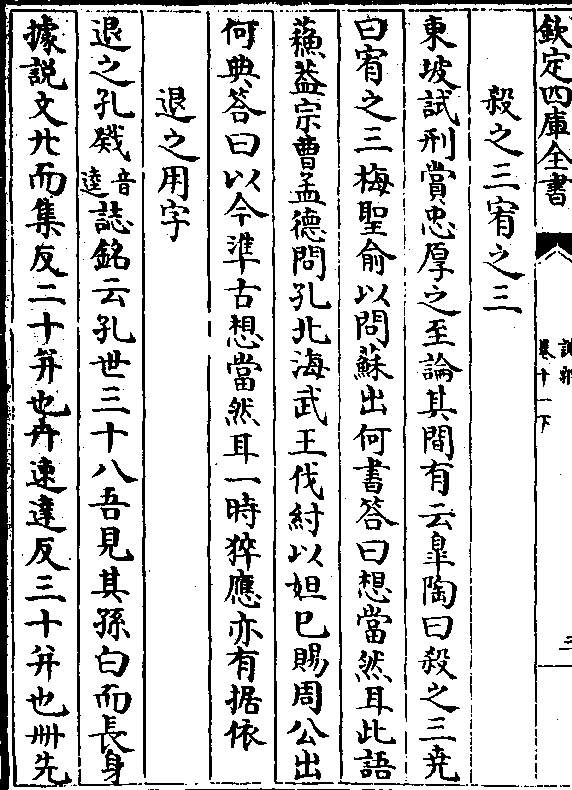 欽定四庫全書
卷十一下
三
殺之三宥之三
東坡試刑賞忠厚之至論其間有云臯陶曰殺之三堯
曰宥之三梅聖俞以問蘇出何書答曰想當然耳此語
蘓葢宗曹孟德問孔北海武王伐紂以妲巳賜周公出
何典答曰以今準古想當然耳一時猝應亦有据依
退之用字
退之孔戣音逵誌銘云孔世三十八吾見其孫白而長身
據說文廿而集反二十并也卉速達反三十并也卌先